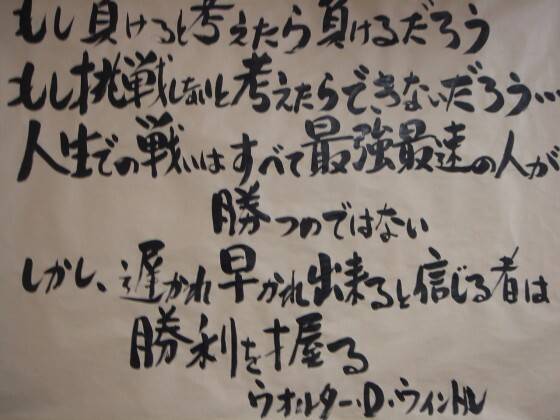 もし負けると考えたら負けるだろう
もし挑戦しないと考えたらできないだろう…
人生での戦いはすべて最強最速の人が
勝つのではない
しかし、遅かれ早かれ出来ると信じる者は
勝利を握る
ウォルター・D・ウィントル